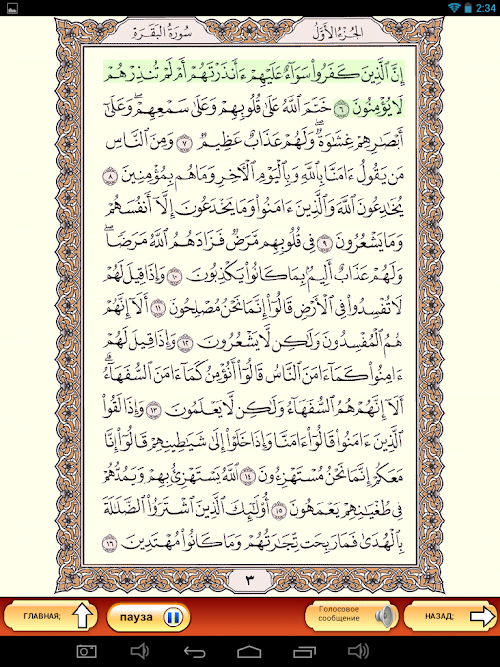 2:34
الجزء الأول
سورة البقرة
إِنَّ ٱلَّذِينَ كَفَرُوا۟ سَوَآءٌ عَلَيْهِمْ ءَأَنذَرْتَهُمْ أَمْ لَمْ تُنذِرْهُمْ
لَا يُؤْمِنُونَ ٦ خَتَمَ ٱللَّهُ عَلَىٰ قُلُوبِهِمْ وَعَلَىٰ سَمْعِهِمْ ۖ وَعَلَىٰٓ
أَبْصَٰرِهِمْ غِشَٰوَةٌ ۖ وَلَهُمْ عَذَابٌ عَظِيمٌ ٧ وَمِنَ ٱلنَّاسِ
مَن يَقُولُ ءَامَنَّا بِٱللَّهِ وَبِٱلْيَوْمِ ٱلْءَاخِرِ وَمَا هُم بِمُؤْمِنِينَ ٨
يُخَٰدِعُونَ ٱللَّهَ وَٱلَّذِينَ ءَامَنُوا۟ وَمَا يَخْدَعُونَ إِلَّآ أَنفُسَهُمْ
وَمَا يَشْعُرُونَ ٩ فِى قُلُوبِهِم مَّرَضٌ فَزَادَهُمُ ٱللَّهُ مَرَضًا ۖ
وَلَهُمْ عَذَابٌ أَلِيمٌۢ بِمَا كَانُوا۟ يَكْذِبُونَ ١٠ وَإِذَا قِيلَ لَهُمْ
لَا تُفْسِدُوا۟ فِى ٱلْأَرْضِ قَالُوٓا۟ إِنَّمَا نَحْنُ مُصْلِحُونَ ١١ أَلَآ إِنَّهُمْ
هُمُ ٱلْمُفْسِدُونَ وَلَٰكِن لَّا يَشْعُرُونَ ١٢ وَإِذَا قِيلَ لَهُمْ
ءَامِنُوا۟ كَمَآ ءَامَنَ ٱلنَّاسُ قَالُوٓا۟ أَنُؤْمِنُ كَمَآ ءَامَنَ ٱلسُّفَهَآءُ ۗ
أَلَآ إِنَّهُمْ هُمُ ٱلسُّفَهَآءُ وَلَٰكِن لَّا يَعْلَمُونَ ١٣ وَإِذَا لَقُوا۟
ٱلَّذِينَ ءَامَنُوا۟ قَالُوٓا۟ ءَامَنَّا وَإِذَا خَلَوْا۟ إِلَىٰ شَيَٰطِينِهِمْ قَالُوٓا۟ إِنَّا
مَعَكُمْ إِنَّمَا نَحْنُ مُسْتَهْزِءُونَ ١٤ ٱللَّهُ يَسْتَهْزِئُ بِهِمْ وَيَمُدُّهُمْ
فِى طُغْيَٰنِهِمْ يَعْمَهُونَ ١٥ أُو۟لَٰٓئِكَ ٱلَّذِينَ ٱشْتَرَوُا۟ ٱلضَّلَٰلَةَ
بِٱلْهُدَىٰ فَمَا رَبِحَت تِّجَٰرَتُهُمْ وَمَا كَانُوا۟ مُهْتَدِينَ ١٦
٣
ГЛАВНАЯ;
пауза
Голосовое
сообщение
НАЗАД;